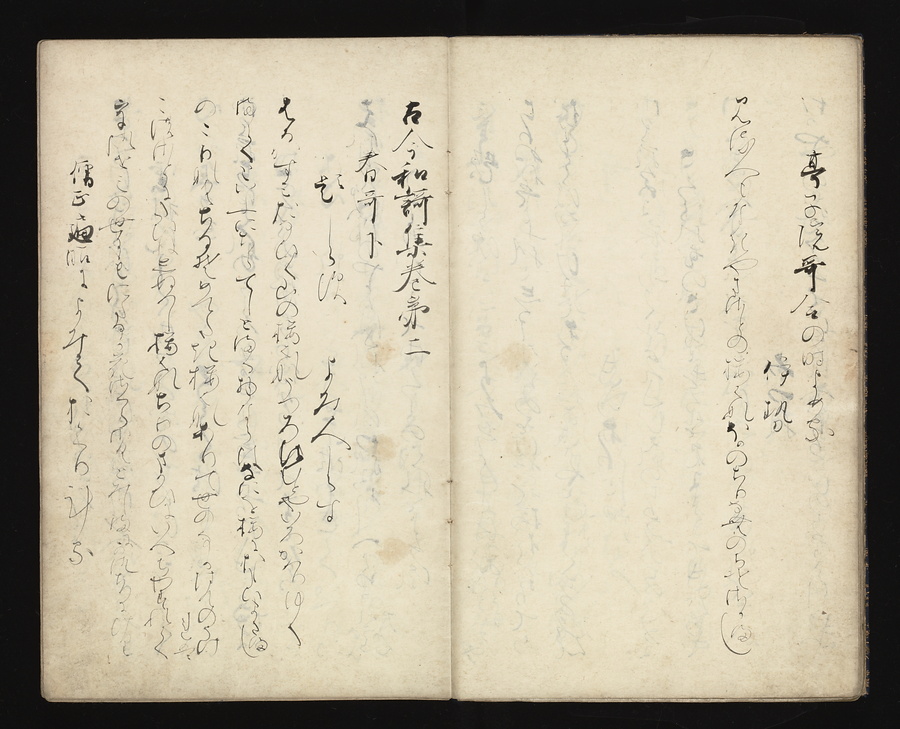 亭子院哥合の時よめる
伊勢
見る人もなきやまさとの桜花ほかのちりなむのちそさかまし
古今和謌集巻第二
春哥下
題しらす　よみ人しらす
はるかすみたなひく山の桜花うつろはむとや色かはりゆく
まてといふにちらてしとまる物ならはなにを桜におもひまさまし
のこりなくちるそめてたき桜花ありて世のなかはてのうけれは
このさとにたひねしぬへし桜花ちりのまかひにいへちわすれて
うつせみの世にもにたるか花さくらさくと見しまにかつちりにけり
僧正遍昭によみておくりける